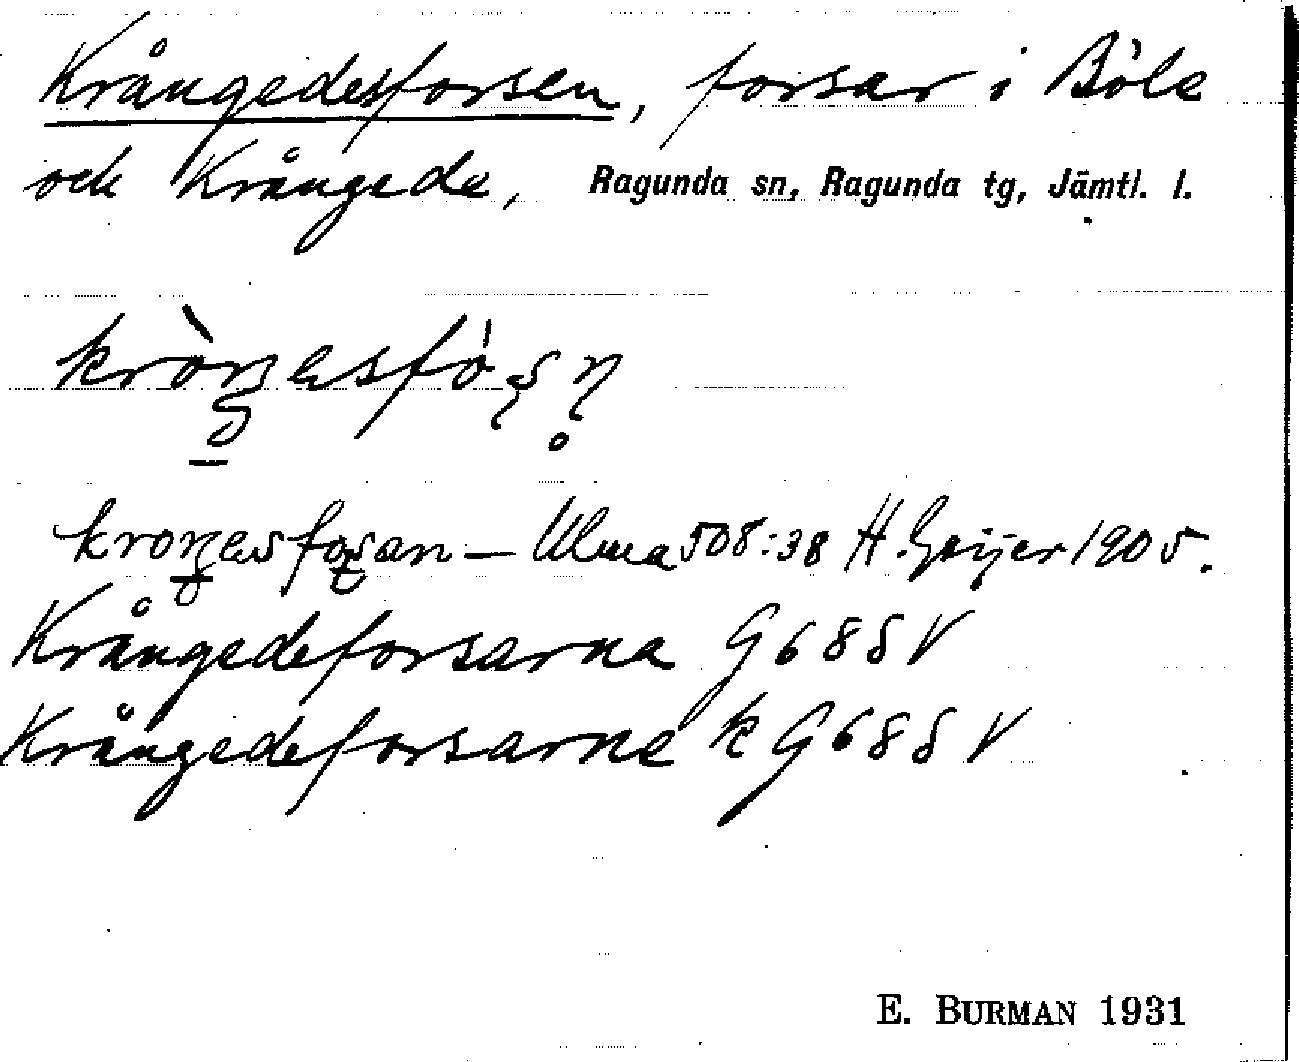 Krångedesforsen, forsar i Böle
och Krångede, Ragunda sn, Ragunda tg, Jämtl. l.
Ulma 508:38 H. Geijer 1905.
Krångedeforsarna G 68 S V
Krångedeforsarne k G 68 S V
E. BURMAN 1931